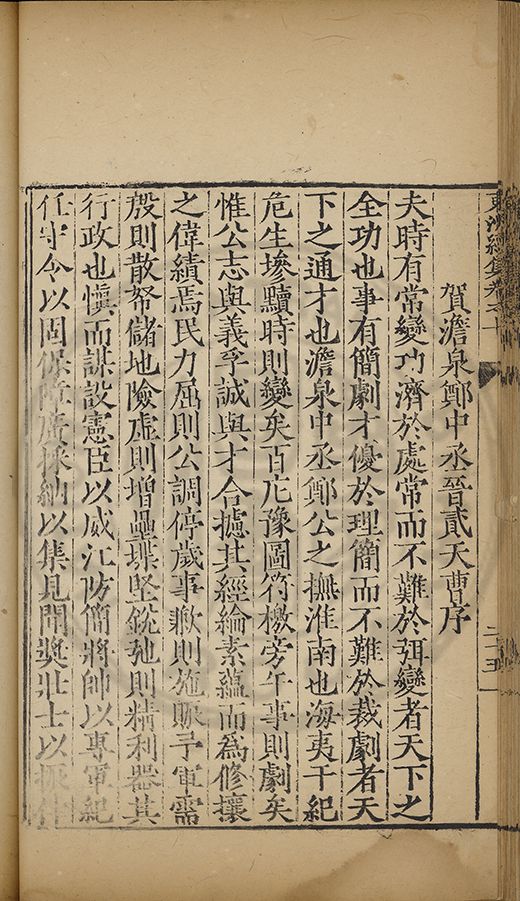 東洲續集卷之十
二十五
賀澹泉鄭中丞晉貳天曹序
夫時有常變功濟於處常而不難於弭變者天下之
全功也事有簡劇才優於理簡而不難於裁劇者天
下之通才也澹泉中丞鄭公之撫淮南也海夷干紀
危生墋黷時則變矣百庀豫圖符檄旁午事則劇矣
惟公志與義孚誠與才合攄其經綸素蘊而為修攘
之偉績焉民力屈則公調停歲事歉則施賑予軍需
殷則散帑儲地險虛則增壘堞堅銳弛則精利器其
行政也慎而謀設憲臣以威江防簡將帥以專軍紀
任守令以固保障廣採納以集見聞獎壯士以振